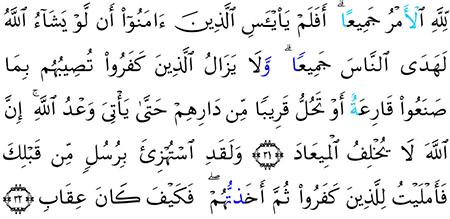 لِّلَّهِ ٱلۡأَمۡرُ جَمِيعًاۗ أَفَلَمۡ يَاْيۡـَٔسِ ٱلَّذِينَ ءَامَنُوٓاْ أَن لَّوۡ يَشَآءُ ٱللَّهُ
لَهَدَى ٱلنَّاسَ جَمِيعٗاۗ وَلَا يَزَالُ ٱلَّذِينَ كَفَرُواْ تُصِيبُهُم بِمَا
صَنَعُواْ قَارِعَةٌ أَوۡ تَحُلُّ قَرِيبٗا مِّن دَارِهِمۡ حَتَّىٰ يَأۡتِيَ وَعۡدُ ٱللَّهِۚ إِنَّ
ٱللَّهَ لَا يُخۡلِفُ ٱلۡمِيعَادَ ٣١ وَلَقَدِ ٱسۡتُهۡزِئَ بِرُسُلٖ مِّن قَبۡلِكَ
فَأَمۡلَيۡتُ لِلَّذِينَ كَفَرُواْ ثُمَّ أَخَذتُّهُمۡۖ فَكَيۡفَ كَانَ عِقَابِ ٣٢